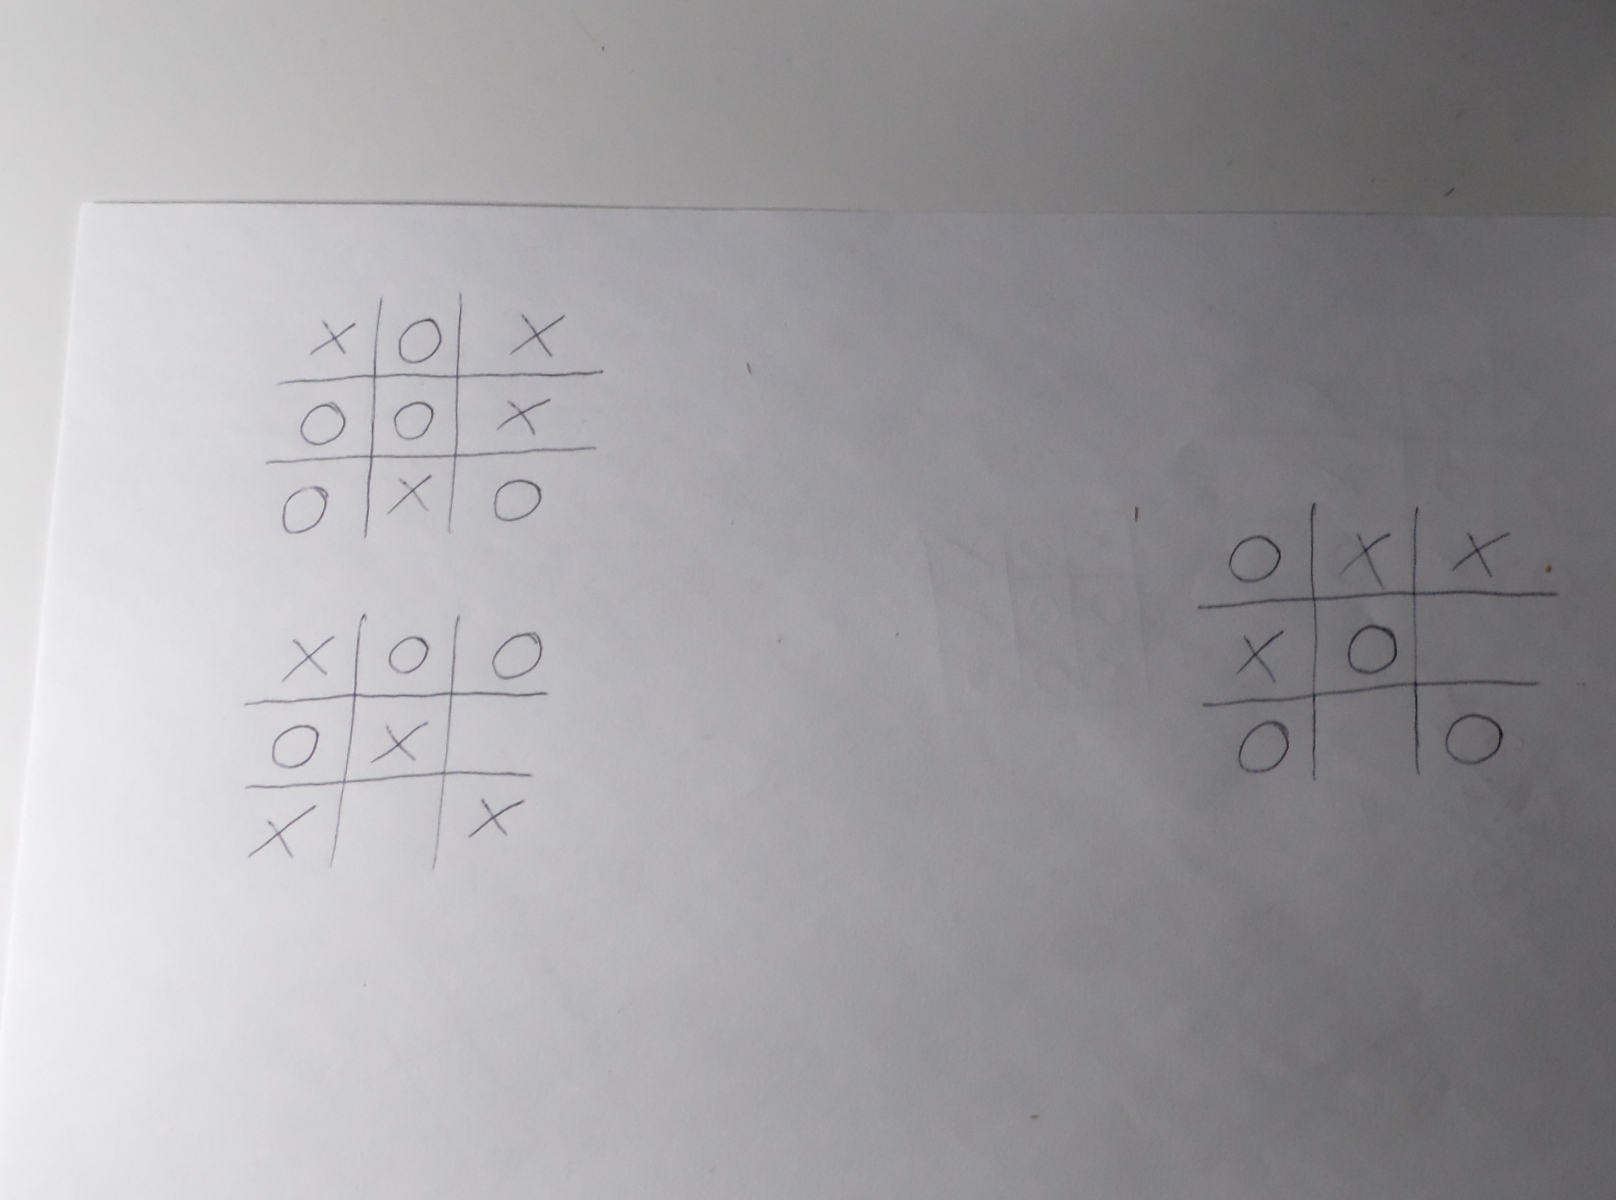 X O X
O O X
O X O
X O O
O X
X X
O X X
X O
O O